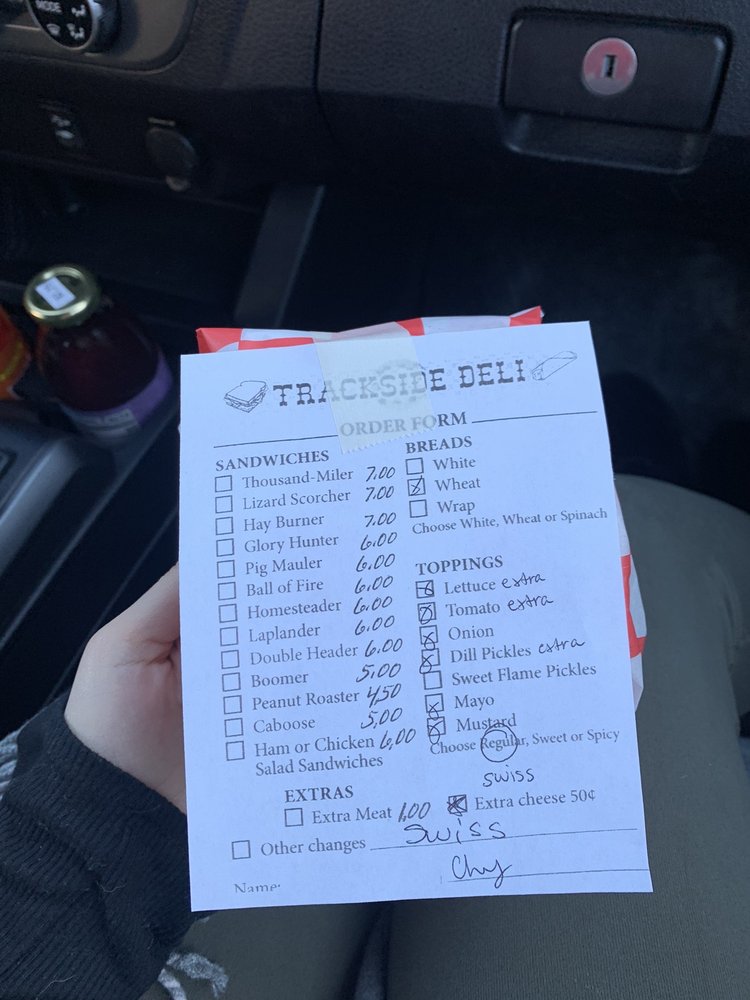 MODE
TRACKSIDE DELI
ORDER FORM
SANDWICHES
Thousand-Miler 7.00
Lizard Scorcher 7.00
Hay Burner 7.00
Glory Hunter 6.00
Pig Mauler 6.00
Ball of Fire 6.00
Homesteader 6.00
Laplander 6.00
Double Header 6.00
Boomer 5.00
Peanut Roaster 4.50
Caboose 5.00
Ham or Chicken 6.00
Salad Sandwiches
BREADS
White
Wheat
Wrap
Choose White, Wheat or Spinach
TOPPINGS
Lettuce extra
Tomato extra
Onion
Dill Pickles extra
Sweet Flame Pickles
Mayo
Mustard
Choose Regular, Sweet or Spicy
swiss
EXTRAS
Extra Meat 1.00
Extra cheese 50¢
Other changes swiss
Name: Chy